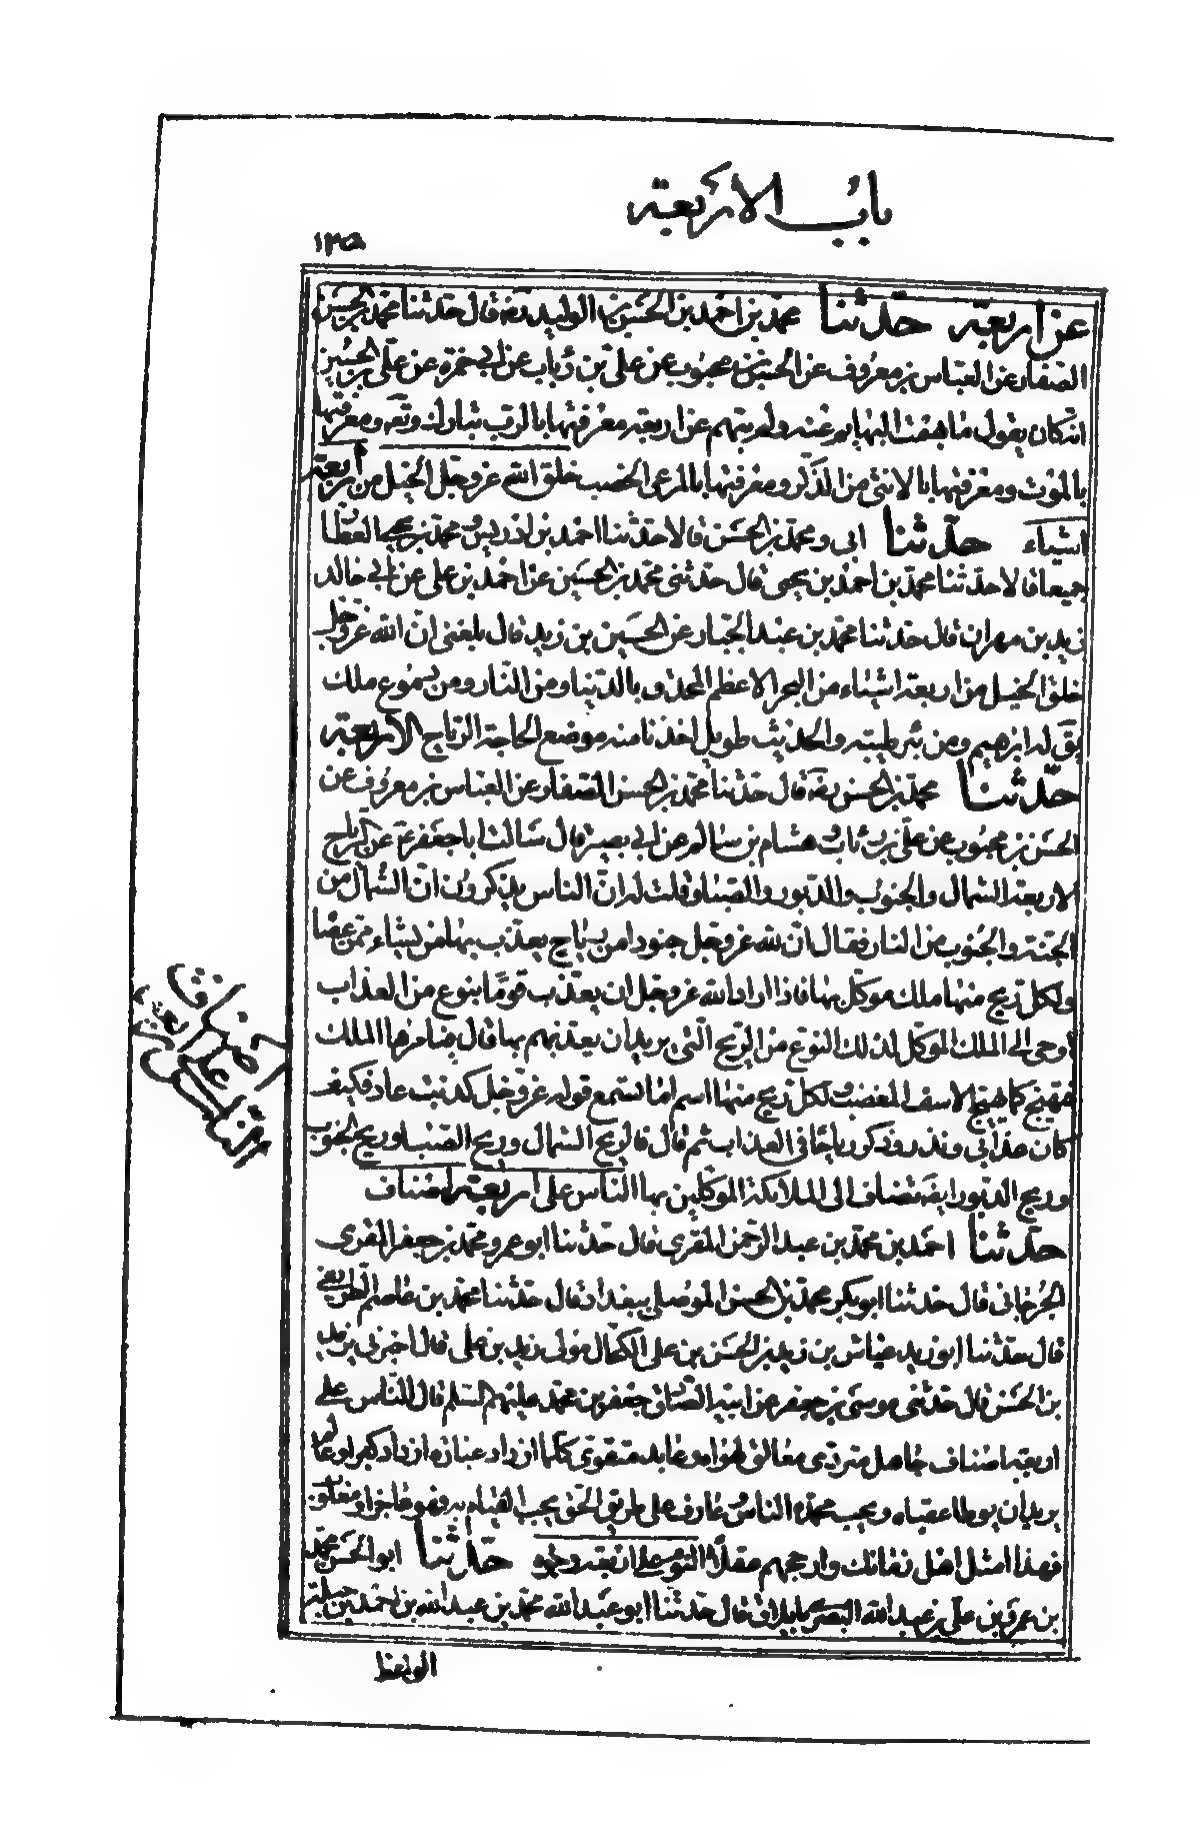 باب الاربعة
١٣٥
عن اربعة حدثنا محمد بن احمد بن الحسن بن الوليد رضه قال حدثنا محمد بن الحسن
الصفار عن العباس بن معروف عن الحسن بن محبوب عن علي بن رئاب عن ابي حمزة عن علي بن الحسين
انه كان يقول ما بهمت البهايم عنه ولم يبهم عن اربعة معرفتها بالرب تبارك وتعه ومعرفتها
بالموت ومعرفتها بالانثى من الذكر ومعرفتها بالمرعى الخصب خلق الله عز وجل الخيل من اربعة
اشياء حدثنا ابي ومحمد بن الحسن قالا حدثنا احمد بن ادريس ومحمد بن يحيى العطار
جميعا قالا حدثنا محمد بن احمد بن يحيى قال حدثنى محمد بن الحسين عن احمد بن على عن ابي خالد
زيد بن مهران قال حدثنا محمد بن عبد الجبار عن الحسين بن زيد قال بلغنى ان الله عز وجل
خلق الخيل من اربعة اشياء من البحر الاعظم المحدق بالدنيا ومن النار ومن دموع ملك
يق له ابرهيم ومن بئر طيبة والحديث طويل اخذنا منه موضع الحاجة الرياح الاربعة
حدثنا محمد بن الحسن رضه قال حدثنا محمد بن الحسن الصفار عن العباس بن معروف عن
الحسن بن محبوب عن على بن رئاب وهشام بن سالم عن ابي بصير قال سالت ابا جعفر ع عن الرياح
الاربعة الشمال والجنوب والدبور والصبا وقلت له ان الناس يذكرون ان الشمال من
الجنة والجنوب من النار فقال ان لله عز وجل جنودا من رياح يعذب بها من يشاء ممن عصا
ولكل ريح منها ملك موكل بها فاذا اراد الله عز وجل ان يعذب قوما بنوع من العذاب
اوحى الى الملك الموكل لذلك النوع من الريح التى يريد ان يعذبهم بها قال فيامرها الملك
فتهيج كما يهيج الاسد المغضب ولكل ريح منها اسم اما تسمع قوله عز وجل كذبت عاد فكيف
كان عذابي ونذر وذكر رياحا في العذاب ثم قال فالريح الشمال وريح الصبا وريح الجنوب
وريح الدبور ايضه تضاف الى الملائكة الموكلين بها الناس على اربعة اصناف
حدثنا احمد بن محمد بن عبد الرحمن المقرى قال حدثنا ابو عمرو محمد بن جعفر المقرى
الجرجانى قال حدثنا ابو بكر محمد بن الحسن الموصلي ببغداد قال حدثنا محمد بن عاصم الطريفى
قال حدثنا ابو زيد عياش بن زيد بن الحسن بن على الكحال مولى زيد بن على قال اخبرنى ابي زيد
بن الحسن قال حدثنى موسى بن جعفر عن ابيه الصادق جعفر بن محمد عليهم السلم قال للناس على
اربعة اصناف جاهل متردى معانق لهواه وعابد متقوى كلما ازداد عبادة ازداد كبرا وعالم
يريد ان يوطا عقباه ويحب محمدة الناس وعارف على طريق الحق يحب القيام به وهو عاجز او مغلوب
فهذا امثل اهل زمانك وارجحهم عقلا النوم على اربعة وجوه حدثنا ابو الحسن محمد
بن عمرو بن على بن عبد الله البصرى بايلاق قال حدثنا ابو عبد الله محمد بن عبد الله بن احمد بن جبلة
الواعظ
الناس على اربعة
اصناف